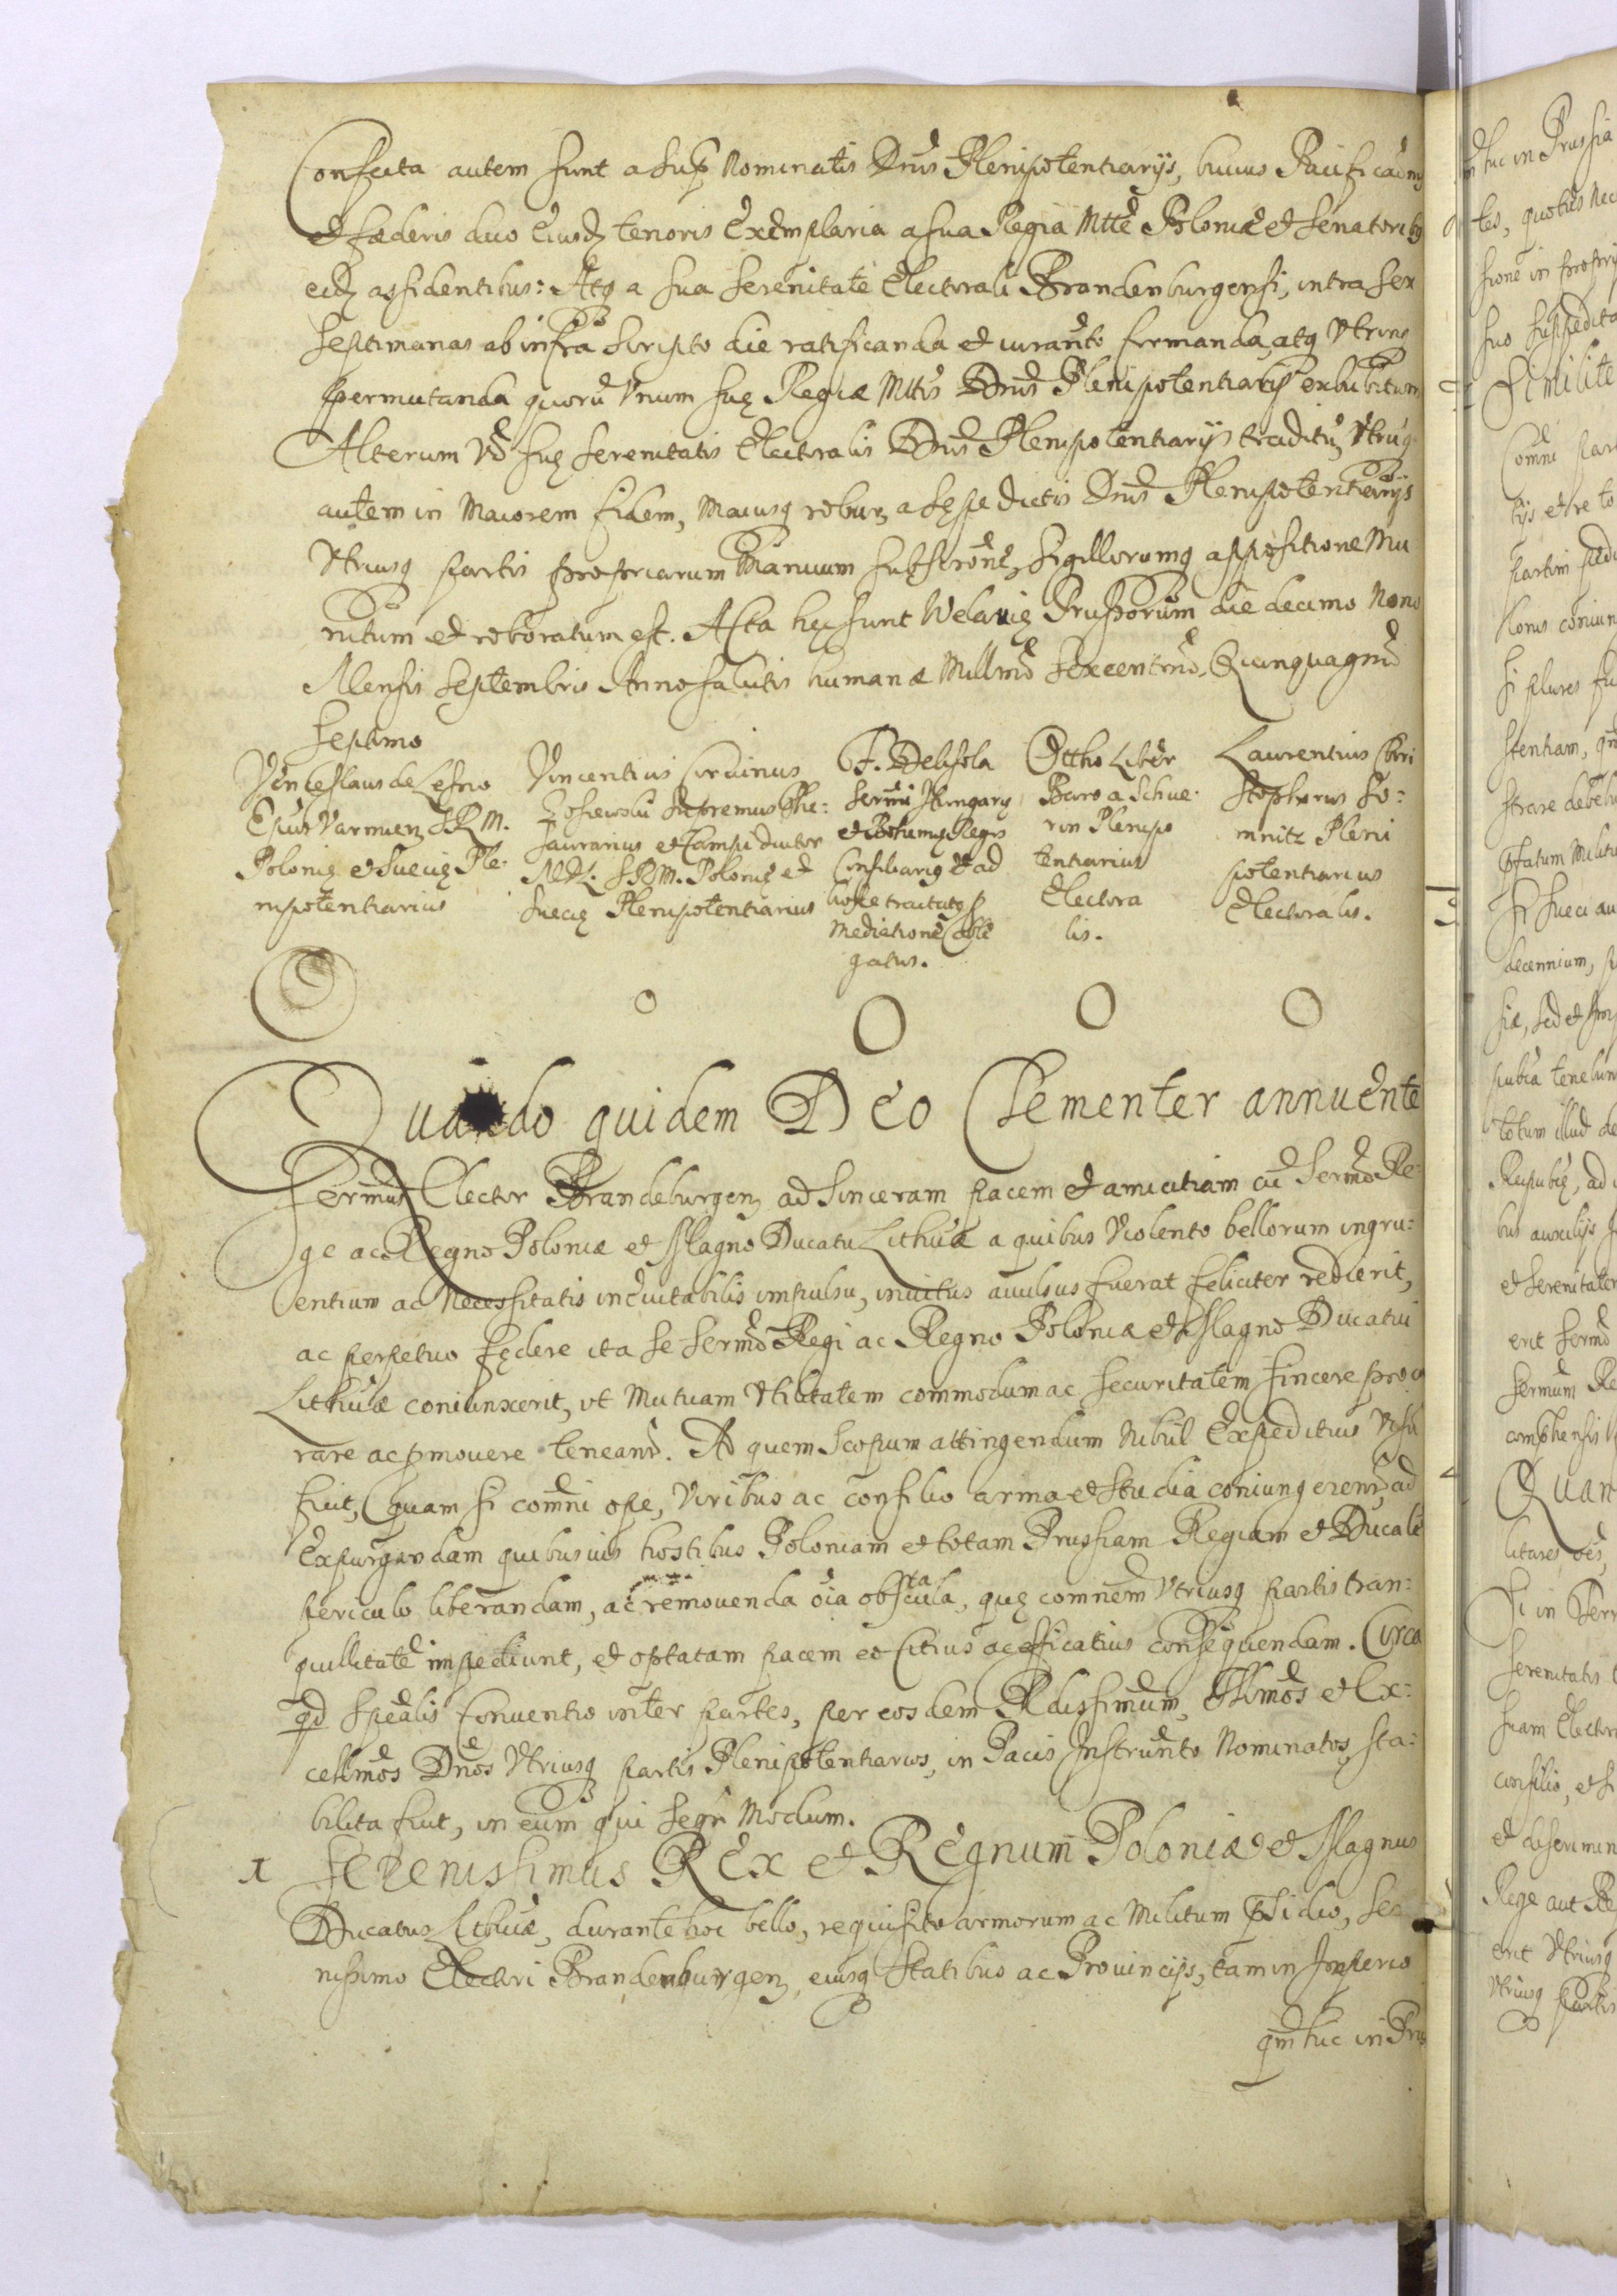 Confecta autem sunt a sup Nominatis Dnis Plenipotentiarijs, huius Pacificaōnis
et fæderis duo Eiusdē tenoris Exemplaria a sua Regia Mtte Poloniæ et Senatoribq
eidē assidentibus: Atq a sua Serenitate Electorali Brandenburgensi, intra sex
Septimanas ab infra scripto die ratificanda et iuramto firmanda, atq Vtrinq
permutanda quorū Vnum suę Regiæ Mttis Dnis Plenipotentiarijs exhibitum
Alterum Vo suę Serenitatis Electoralis Dnis Plenipotentiarijs traditū, Vtrūq
autem in Maiorem fidem, Maiusq robur, a sępe dictis Dnis Plenipotentiarijs
Vtriusq partis propriarum Manuum subscrōne, Sigillorumq appositione Mu
nitum et roboratum est. Acta hęc sunt Welavię Prussorum die decimo Nono
Mensis Septembris Anno salutis humanæ Millmo Sexcentmo, Quinquagmo
Septimo
Venceslaus de Lesno
Epus Varmien, S.R.M.
Polonię et Suecię Ple:
nipotentiarius
Vincentius Corvinus
Gosiewski Supremus The:
saurarius et Campi ductor
M.D.L. S.R.M. Polonię et
Suecię Plenipotentiarius
F. Delisola
Sermi Hungarię
et Bohemię Regis
Consiliarig et ad
hosce tractatus p
Mediatione Able
gatus.
Ottho Liber
Baro a Schue:
rin Plenipo
tentiarius
Electora
lis.
Laurentius Chri
stophorus So:
mnitz Pleni
potentiarius
Electoralis.
Quando quidem DEO Clementer annuente
Sermus Elector Brandeburgen, ad Sinceram pacem et amicitiam cū Sermo Re:
ge ac Regno Poloniæ et Magno Ducatu Lithuæ a quibus Violento bellorum ingru:
entium ac Necessitatis ineuitabilis impulsu, inuitus auulsus fuerat feliciter redierit,
ac perpetuo fędere ita se Sermo Regi ac Regno Poloniæ et Magno Ducatui
Lithuæ coniunxerit, ut Mutuam Vtilitatem commodum ac securitatem sincere procu
rare ac pmouere teneantr. Ad quem Scopum attingendum Nihil Expeditius Visū
fuit, Quam si comni ope, Viribus ac consilio arma et studia coniungerentr, ad
Expurgandam quibusuis hostibus Poloniam et totam Prussiam Regiam et Ducale
periculo liberandam, ac remouenda oia obstacula, quę comnem Vtriusq partis tran:
quillitatē impediunt, et optatam pacem eo Citius ac efficatius consequendam. Circa
qd spealis Conuentio inter partes, per eosdem Rdissimum, Illmos et Ex:
cellmos Dnos Vtriusq partis Plenipotentiarios, in Pacis Instrumto Nominatos, sta:
bilita fuit, in eum qui seqr Modum.
1 Serenissimus REX et REgnum Poloniæ et Magnus
Ducatus Lithuæ, durante hoc bello, requisito armorum ac Militum psidio, Sere
nissimo Electori Brandenburgen, eiusq Statibus ac Prouincijs, tam in Imperio
qm huc in Prus